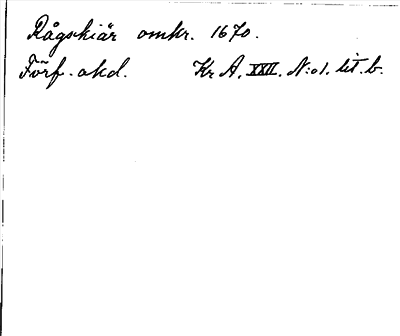 Rågskiär omkr. 1670.
Förf. okd. Kr A. XXII. N:o1. lit. b.